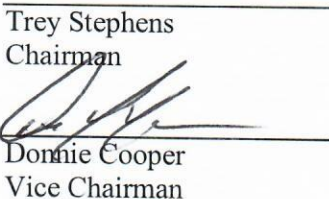 Trey Stephens
Chairman
Donnie Cooper
Vice Chairman